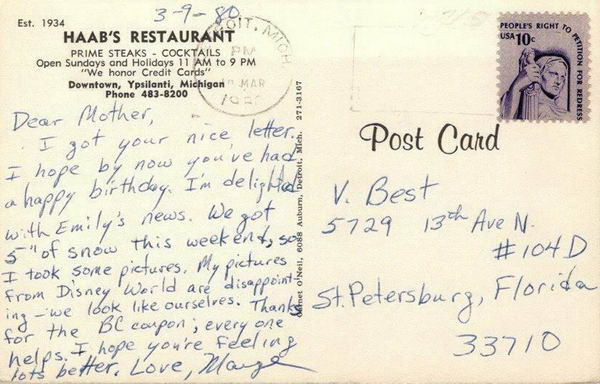 3-9-80
Est. 1934
HAAB'S RESTAURANT
PRIME STEAKS - COCKTAILS
Open Sundays and Holidays 11 AM to 9 PM
"We honor Credit Cards"
Downtown, Ypsilanti, Michigan
Phone 483-8200
Dear Mother,
I got your nice letter.
I hope by now you've had
a happy birthday. I'm delighted
with Emily's news. We got
5" of snow this weekend, so
I took some pictures. My pictures
from Disney World are disappoint-
ing - we look like ourselves. Thanks
for the BC coupon; every one
helps. I hope you're feeling
lots better. Love, Marge
OIT, MICH.
PM
MAR
271-3167
O'Neil, 6088 Auburn, Detroit, Mich.
PEOPLE'S RIGHT TO PETITION FOR REDRESS
USA 10c
Post Card
V. Best
5729 13th Ave N.
#104D
St. Petersburg, Florida
33710